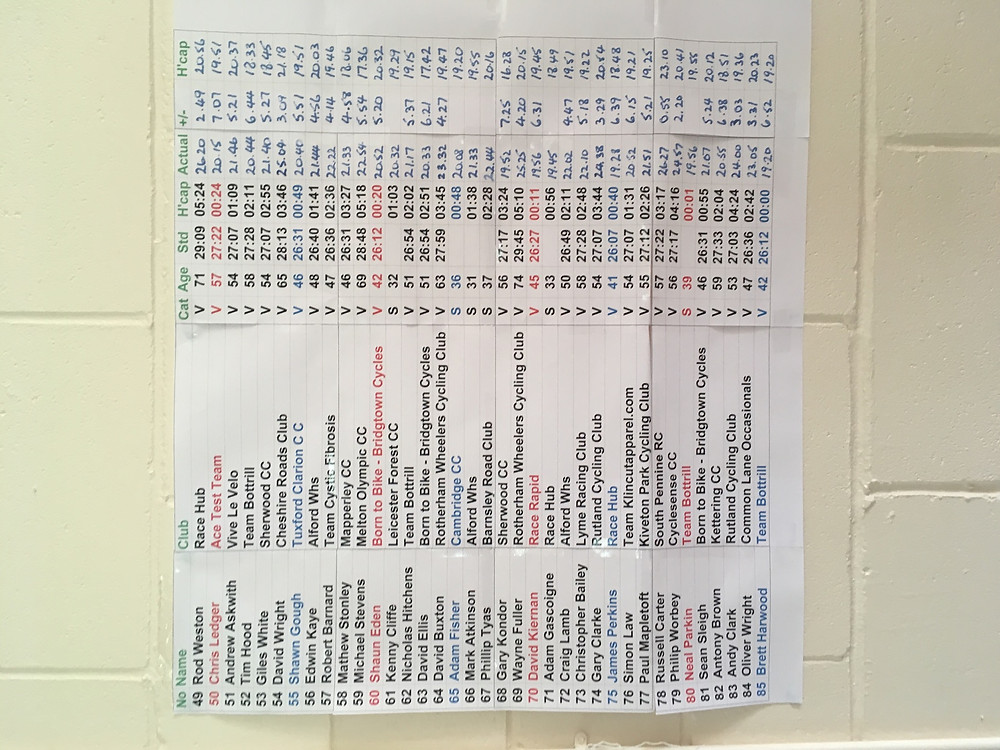 No Name Club Cat Age Std H'cap Actual +/- H'cap
49 Rod Weston Race Hub V 71 29:09 05:24 26.20 2.49 20.56
50 Chris Ledger Ace Test Team V 57 27:22 00:24 20.15 7.07 19.51
51 Andrew Askwith Vive Le Velo V 54 27:07 01:09 21.46 5.21 20.37
52 Tim Hood Team Bottrill V 58 27:28 02:11 20.44 6.44 18.33
53 Giles White Sherwood CC V 54 27:07 02:55 21.40 5.27 18.45
54 David Wright Cheshire Roads Club V 65 28:13 03:46 25.04 3.09 21.18
55 Shawn Gough Tuxford Clarion C C V 46 26:31 00:49 20.40 5.51 19.51
56 Edwin Kaye Alford Whs V 48 26:40 01:41 21.44 4.56 20.03
57 Robert Barnard Team Cystic Fibrosis V 47 26:36 02:36 22.22 4.14 19.46
58 Mathew Stonley Mapperley CC V 46 26:31 03:27 21.33 4.58 18.06
59 Michael Stevens Melton Olympic CC V 69 28:48 05:18 22.54 5.54 17.36
60 Shaun Eden Born to Bike - Bridgtown Cycles V 42 26:12 00:20 20.52 5.20 20.32
61 Kenny Cliffe Leicester Forest CC S 32 01:03 20.32 19.29
62 Nicholas Hitchens Team Bottrill V 51 26:54 02:02 21.17 5.37 19.15
63 David Ellis Born to Bike - Bridgtown Cycles V 51 26:54 02:51 20.33 6.21 17.42
64 David Buxton Rotherham Wheelers Cycling Club V 63 27:59 03:45 23.32 4.27 19.47
65 Adam Fisher Cambridge CC S 36 00:48 20.08 19.20
66 Mark Atkinson Alford Whs S 31 01:38 21.33 19.55
67 Phillip Tyas Barnsley Road Club S 37 02:28 22.44 20.16
68 Gary Kondor Sherwood CC V 56 27:17 03:24 19.52 7.25 16.28
69 Wayne Fuller Rotherham Wheelers Cycling Club V 74 29:45 05:10 25.25 4.20 20.15
70 David Kiernan Race Rapid V 45 26:27 00:11 19.56 6.31 19.45
71 Adam Gascoigne Race Hub S 33 00:56 19.45 18.49
72 Craig Lamb Alford Whs V 50 26:49 02:11 22.02 4.47 19.51
73 Christopher Bailey Lyme Racing Club V 58 27:28 02:48 22.10 5.18 19.22
74 Gary Clarke Rutland Cycling Club V 54 27:07 03:44 24.38 3.29 20.54
75 James Perkins Race Hub V 41 26:07 00:40 19.28 6.39 18.48
76 Simon Law Team Klincutapparel.com V 54 27:07 01:31 20.52 6.15 19.21
77 Paul Mapletoft Kiveton Park Cycling Club V 55 27:12 02:26 21.51 5.21 19.25
78 Russell Carter South Pennine RC V 57 27:22 03:17 26.27 0.55 23.10
79 Phillip Worbey Cyclesense CC V 56 27:17 04:16 24.57 2.20 20.41
80 Neal Parkin Team Bottrill S 39 00:01 19.56 19.55
81 Sean Sleigh Born to Bike - Bridgtown Cycles V 46 26:31 00:55 21.07 5.24 20.12
82 Antony Brown Kettering CC V 59 27:33 02:04 20.55 6.38 18.51
83 Andy Clark Rutland Cycling Club V 53 27:03 04:24 24.00 3.03 19.36
84 Oliver Wright Common Lane Occasionals V 47 26:36 02:42 23.05 3.31 20.23
85 Brett Harwood Team Bottrill V 42 26:12 00:00 19.20 6.52 19.20